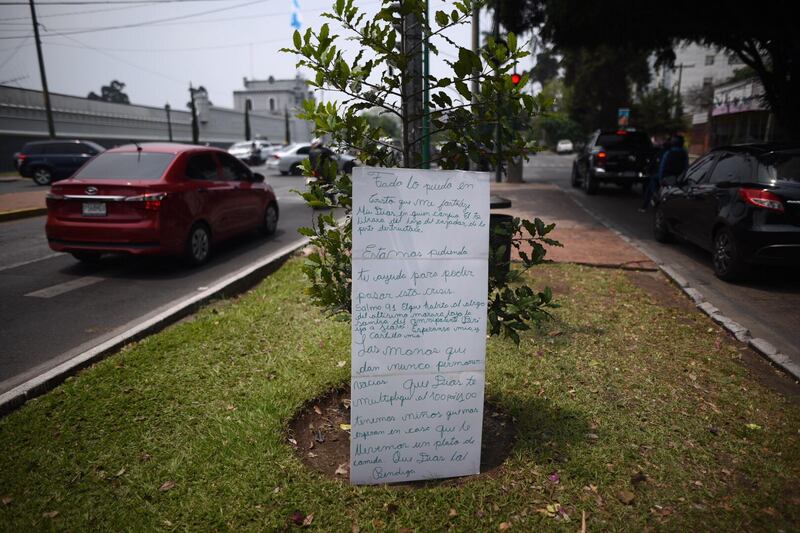 Todo lo puedo en
Cristo que me fortale
Mi Dios en quien confio El te
librara del lazo del cazador de la
peste destructora
Estamos pidiendo
te ayuda para poder
pasar esta crisis
Salmo 91 El que habita al abrigo
del altisimo morara bajo la
sombra del omnipotente
yo a Jeova esperanza mia y
Castillo mio
Las manos que
dan nunca permane
vacias Que Dios te
multiplique al 100 por
tenemos niños que nos
esperan en casa que le
llevemos un plato de
comida. Que Dios lo
Bendiga